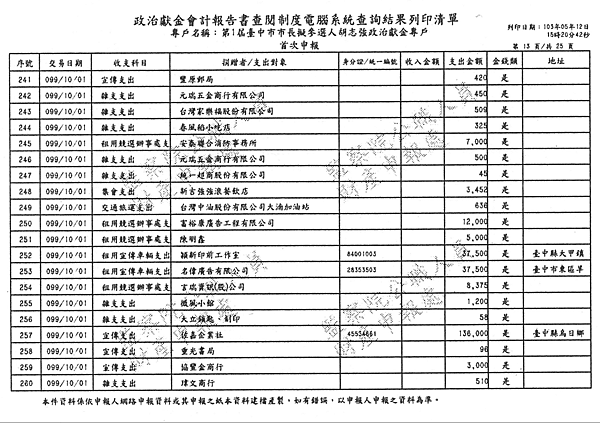 政治獻金會計報告書查閱制度電腦系統查詢結果列印清單
專戶名稱:第1屆臺中市市長擬參選人胡志強政治獻金專戶
首次申報
列印日期:103年05年12日
15時20分42秒
第 13 頁/共 25 頁
序號 交易日期 收支科目 捐贈者/支出對象 身分證/統一編號 收入金額 支出金額 金錢類 地址
241 099/10/01 宣傳支出 豐原郵局 420 是
242 099/10/01 雜支支出 元瑞五金商行有限公司 450 是
243 099/10/01 雜支支出 台灣家樂福股份有限公司 509 是
244 099/10/01 雜支支出 春風帖小吃店 325 是
245 099/10/01 租用競選辦事處支 安泰聯合消防事務所 7,000 是
246 099/10/01 雜支支出 元瑞五金商行有限公司 500 是
247 099/10/01 雜支支出 統一超商股份有限公司 45 是
248 099/10/01 集會支出 新吉強強滾餐飲店 3,452 是
249 099/10/01 交通旅運支出 台灣中油股份有限公司大湳加油站 636 是
250 099/10/01 租用競選辦事處支 富裕康廣告工程有限公司 12,000 是
251 099/10/01 租用競選辦事處支 陳明鑫 5,000 是
252 099/10/01 租用宣傳車輛支出 穎新印前工作室 84001003 37,500 是 臺中縣大甲鎮
253 099/10/01 租用宣傳車輛支出 名偉廣告有限公司 28353503 37,500 是 臺中市東區旱
254 099/10/01 租用競選辦事處支 言瑞資訊(股)公司 8,375 是
255 099/10/01 雜支支出 微風小館 1,200 是
256 099/10/01 雜支支出 大立鎖匙、刻印 58 是
257 099/10/01 宣傳支出 佳嘉企業社 45534661 136,000 是 臺中縣烏日鄉
258 099/10/01 宣傳支出 重光書局 96 是
259 099/10/01 宣傳支出 協豐金商行 3,000 是
260 099/10/01 雜支支出 瑋文商行 510 是
本件資料係依申報人網路申報資料或其申報之紙本資料建檔產製,如有錯誤,以申報人申報之資料為準。
監察院公職人員
財產申報處